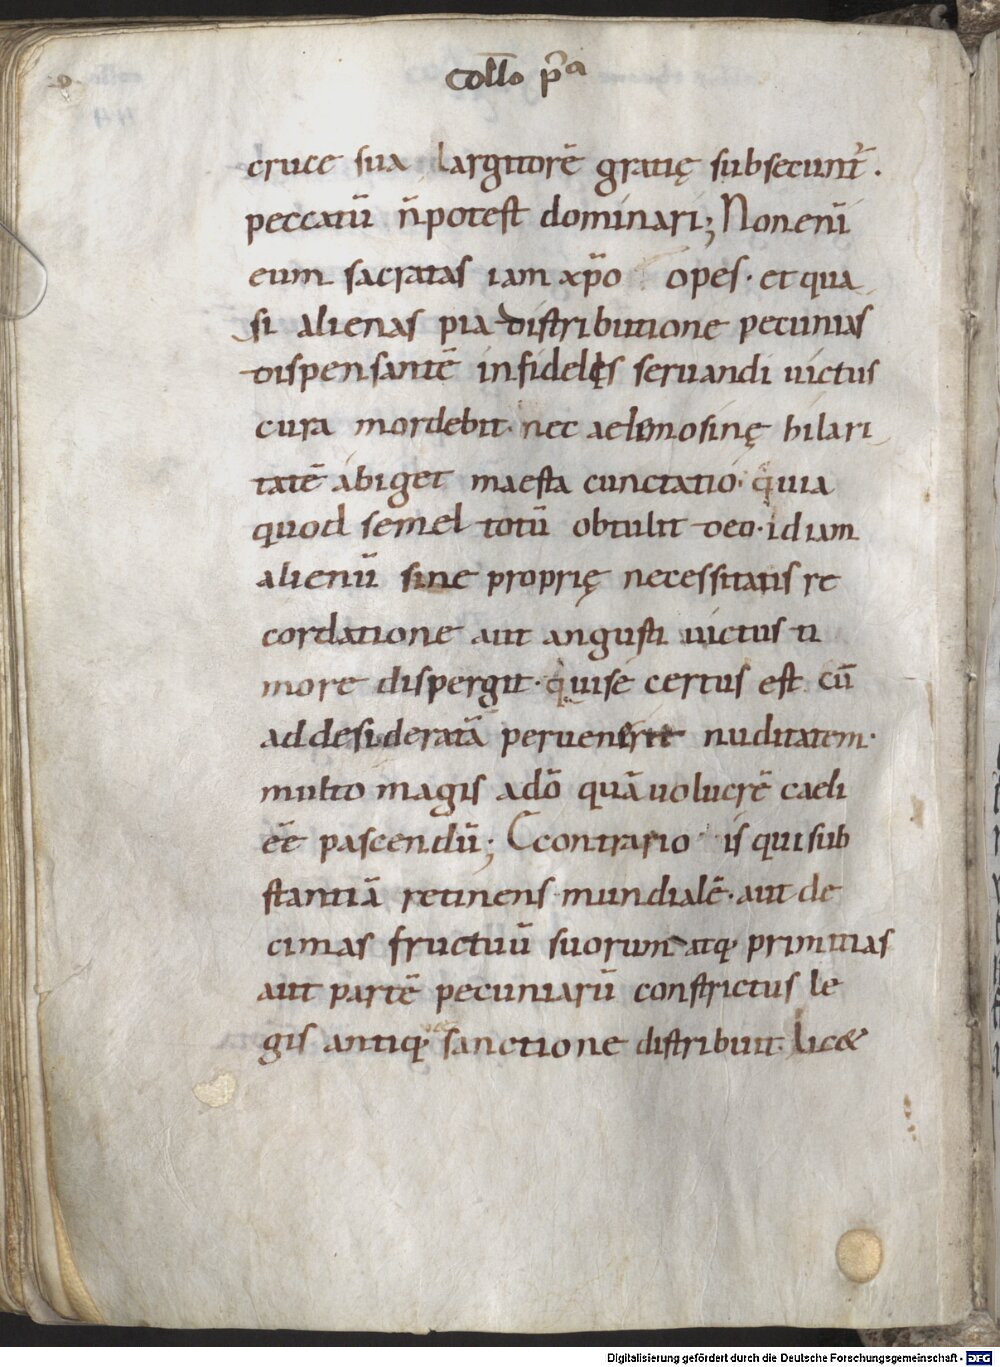 Collo pͣ
cruce sua largitorē gratię subsecunt̄.
peccatū n̄ potest dominari; Non enī
eum sacratas iam xp̄o opes· et qua
si alienas pia distributione pecunias
dispensantē infidelis seruandi uictus
cura mordebit· nec aelemosinę hilari
tatē abiget maesta cunctatio· quia
quod semel totū obtulit deo· id iam
alienū sine proprię necessitatis re
cordatione aut angusti uictus ti
more dispergit· qui se certus est cū
ad desideratā peruenerit nuditatem·
multo magis a dō quā uolucrē caeli
eē pascendū; E contrario is qui sub
stantiā retinens mundialē· aut de
cimas fructuū suorum atq; primitias
aut partē pecuniarū constrictus le
gis antiq; sanctione distribuit· lic&
Digitalisierung gefördert durch die Deutsche Forschungsgemeinschaft - DFG